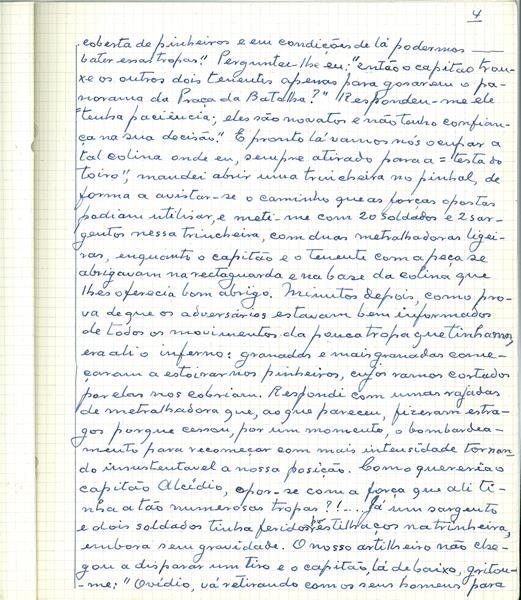 4
coberta de pinheiros e em condições de lá podermos
bater essas tropas". Perguntei-lhe eu: "então o capitão trou-
xe os outros dois tenentes apenas para gosarem o pa-
norama da Praça da Batalha?" Respondeu-me ele
"tenha paciência; eles são novatos e não tenho confian-
ça na sua decisão." E pronto lá vamos nós ocupar a
tal colina onde eu, sempre atirado para a = "testa do
toiro", mandei abrir uma trincheira no pinhal, de
forma a avistar-se o caminho que as forças opostas
podiam utilisar, e meti-me com 20 soldados e 2 sar-
gentos nessa trincheira, com duas metralhadoras ligei-
ras, enquanto o capitão e o tenente com a peça se
abrigavam na rectaguarda e na base da colina que
lhes oferecia bom abrigo. Minutos depois, como pro-
va de que os adversários estavam bem informados
de todos os movimentos da pouca tropa que tinhamos,
era ali o inferno: granadas e mais granadas come-
çaram a estoirar nos pinheiros, cujos ramos cortados
por elas nos cobriam. Respondi com umas rajadas
de metralhadora que, ao que pareceu, fizeram estra-
gos porque cessou, por um momento, o bombardea-
mento para recomeçar com mais intensidade tornan-
do insustentável a nossa posição. Como quereria o
capitão Alcídio, opor-se com a força que ali ti-
nha a tão numerosas tropas?!... Já um sargento
e dois soldados tinha feridos por estilhaços na trinheira,
embora sem gravidade. O nosso artilheiro não che-
gou a disparar um tiro e o capitão, lá de baixo, gritou-
-me: "Ovídio, vá retirando com os seus homens para